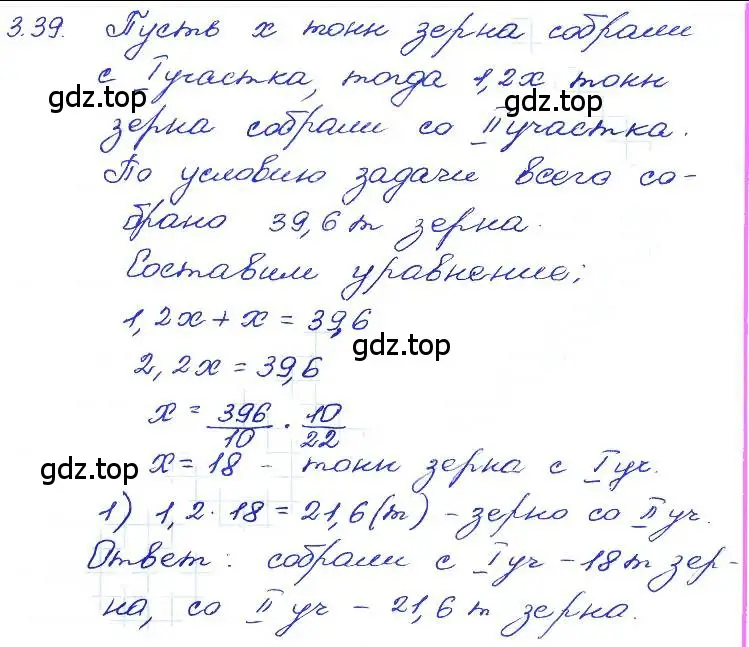 3.39. Пусть x тонн зерна собрали
с I участка, тогда 1,2x тонн
gdz.top gdz.top
зерна собрали со II участка.
По условию задачи всего со-
брано 39,6 т зерна.
Составим уравнение:
1,2x + x = 39,6
gdz.top
2,2x = 39,6
x = 396/10 · 10/22
gdz.top
x = 18 - тонн зерна с I уч.
1) 1,2 · 18 = 21,6 (т) - зерно со II уч.
Ответ: собрали с I уч - 18 т зер-
на, со II уч - 21,6 т зерна.